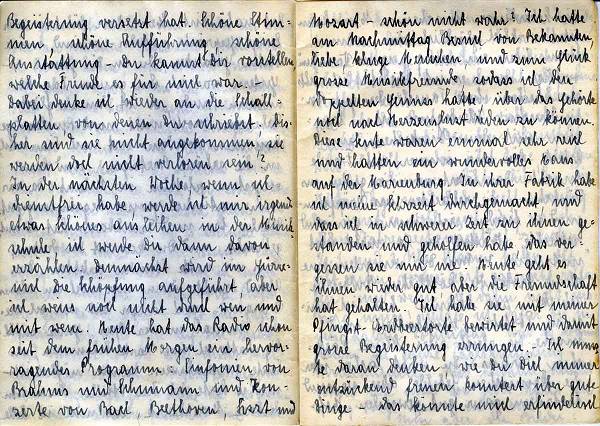 Begeisterung versetzt hat. Schöne Stim-
men, schöne Aufführung, schöne
Ausstattung - Du kannst Dir vorstellen
welche Freude es für mich war. -
Dabei denke ich wieder an die Schall-
platten von denen Du schriebst. Bis-
her sind sie nicht angekommen, sie
werden doch nicht verloren sein?
In der nächsten Woche, wenn ich
dienstfrei habe, werde ich mir irgend
etwas schönes ausleihen in der Musik-
schule, ich werde Dir dann davon
erzählen. Demnächst wird im
die Schöpfung aufgeführt, aber
ich weiss noch nicht wann und
mit wem. Heute hat das Radio schon
seit dem frühen Morgen ein hervor-
ragendes Programm: Sinfonien von
Brahms und Schumann und Kon-
zerte von Bach, Beethoven, Liszt und
Mozart - schön nicht wahr? Ich hatte
am Nachmittag Besuch von Bekannten,
liebe kluge Menschen und zum Glück
grosse Musikfreunde sodass ich den
doppelten Genuss hatte über das Gehörte
noch nach Herzenslust reden zu können.
Diese Leute waren einmal sehr reich
und hatten ein wundervolles Haus
auf der Marienburg. In ihrer Fabrik habe
ich meine Lehrzeit durchgemacht und
dass ich in schwerer Zeit zu ihnen ge-
standen und geholfen habe das ver-
gessen sie mir nie. Heute geht es
ihnen wieder gut aber die Freundschaft
hat gehalten. Ich habe sie mit meiner
Pfingst-Erdbeertorte bewirtet und damit
grosse Begeisterung errungen. - Ich muss-
te daran denken wie Du Dich immer
entzückend freuen konntest über gute
Dinge - das könnte mich